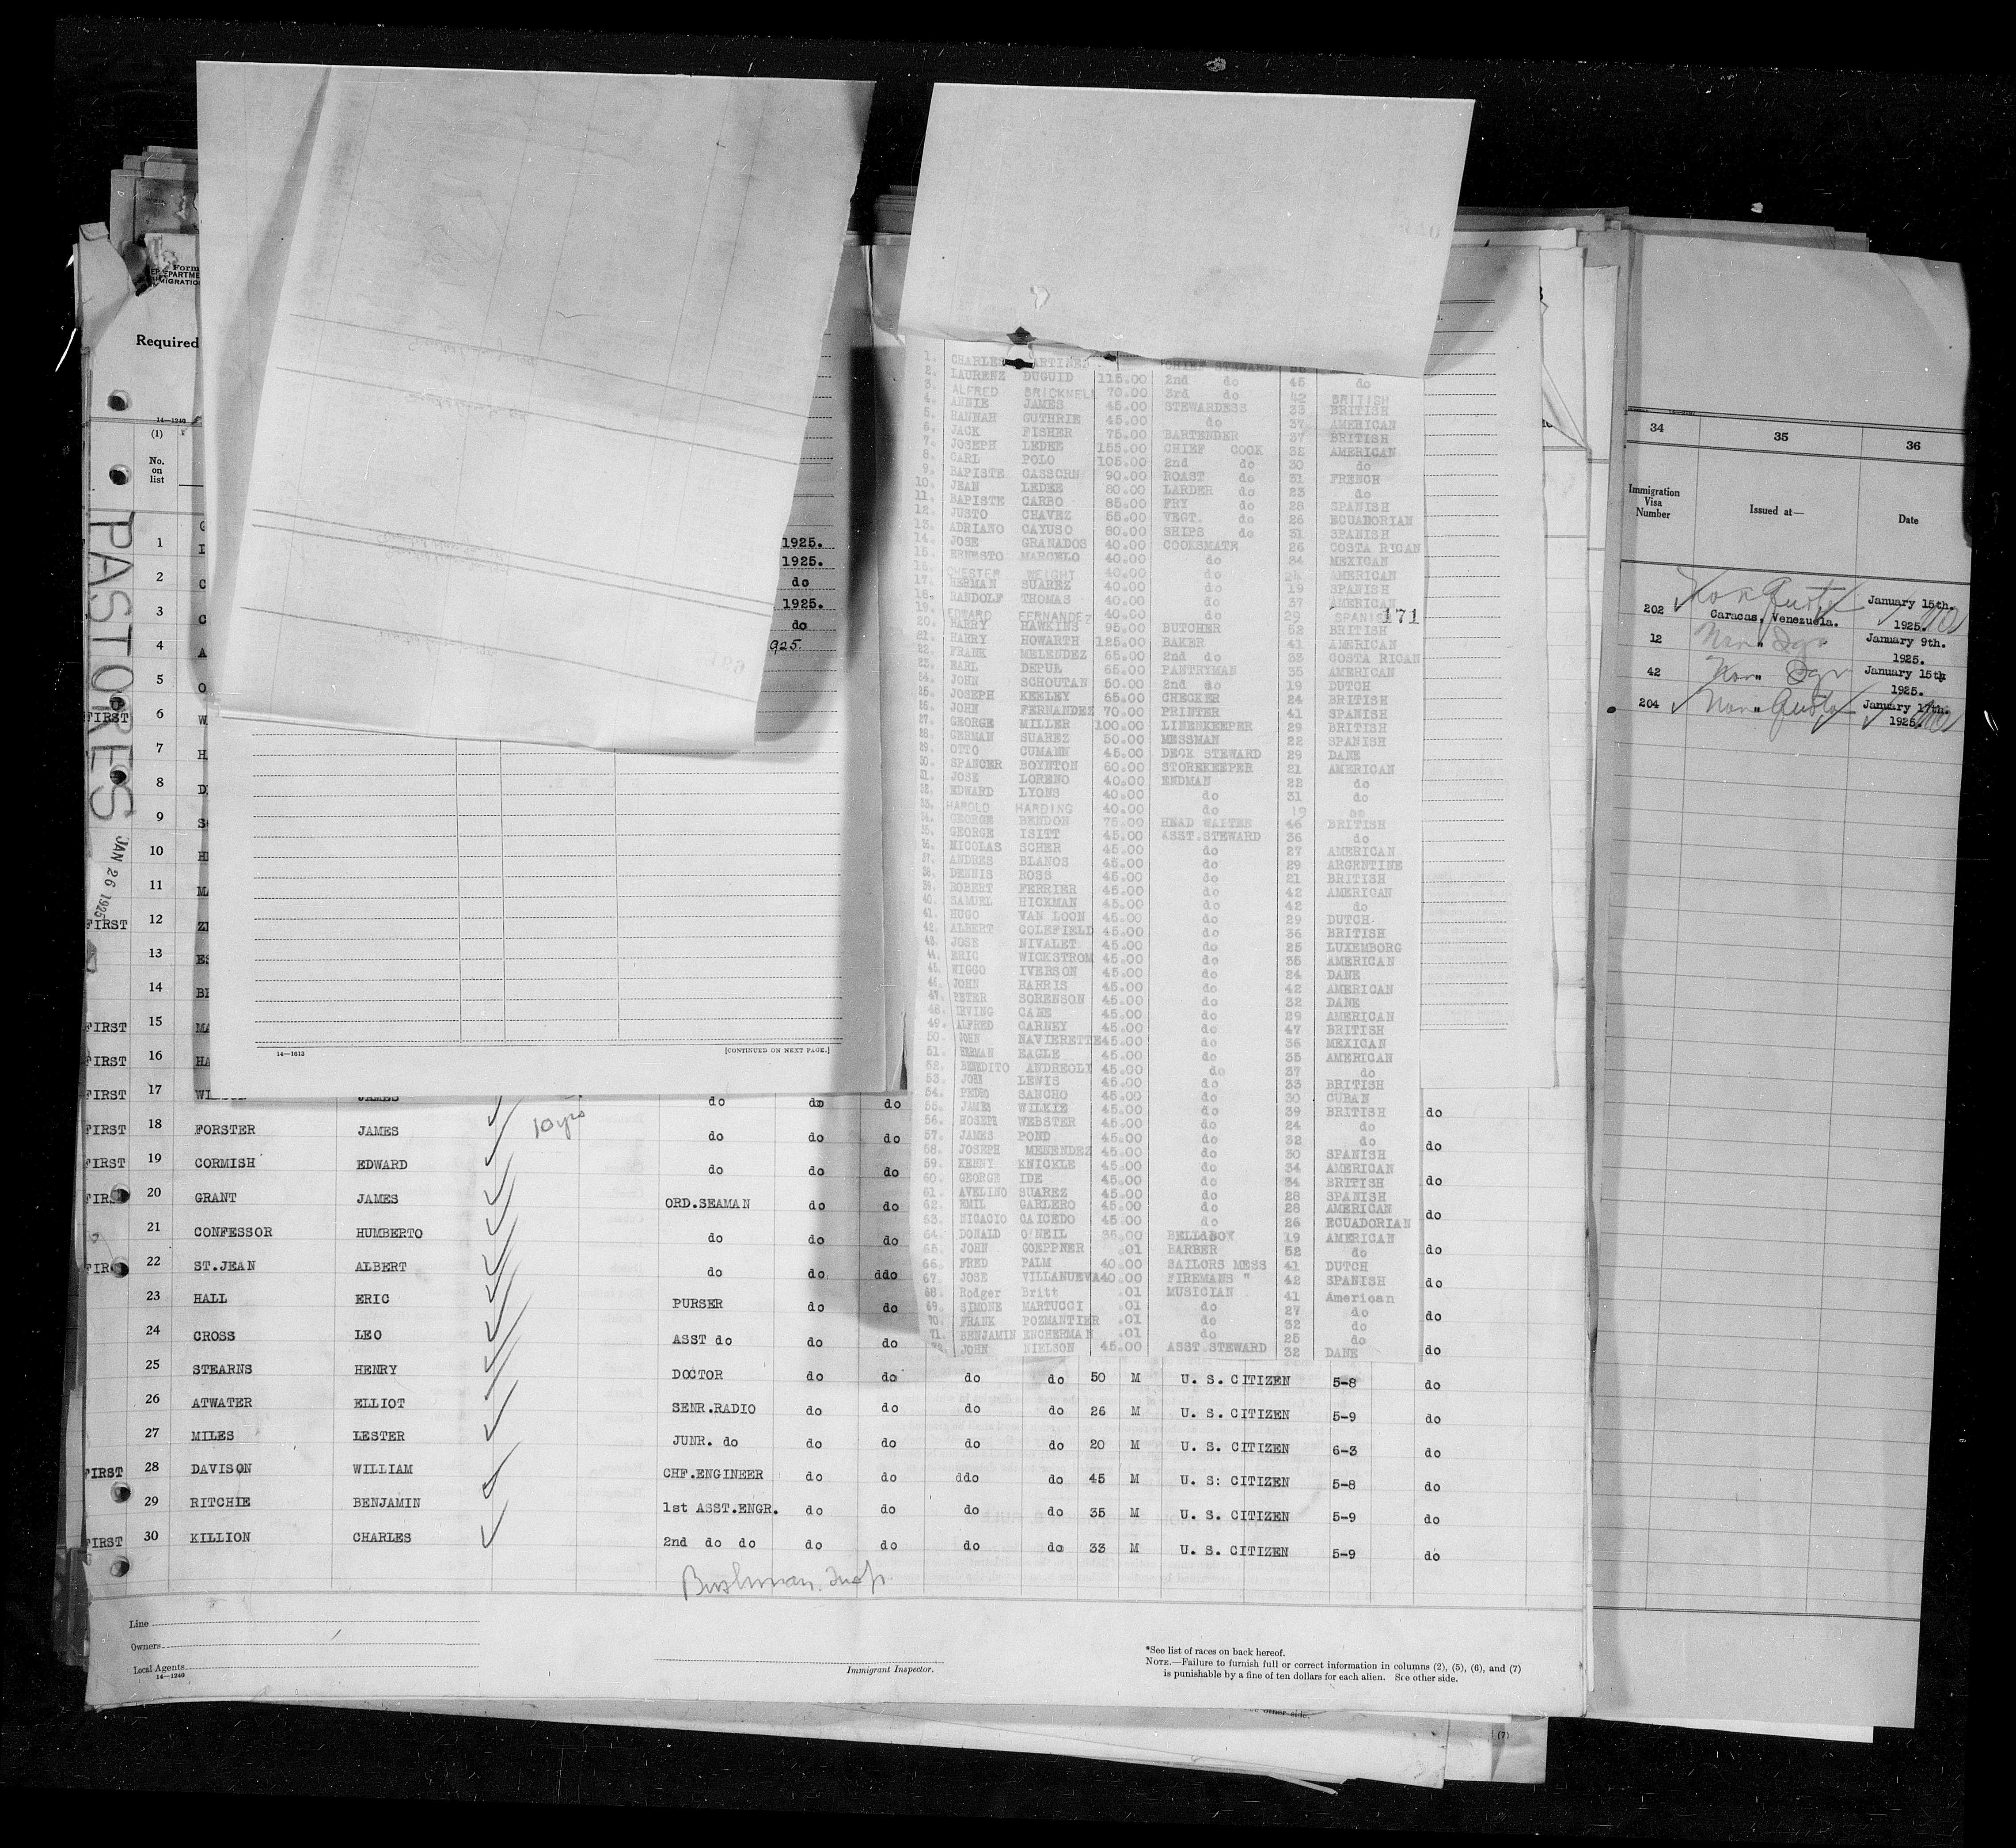 Form
DEPARTME
IMMIGRATION
Required
14—1240
(1)
No.
on
list
PASTORES
JAN 26 1925
1 1925.
1925.
2 do
3 1925.
do
4 925.
5
FIRST 6
7
8
9
10
11
FIRST 12
13
14
FIRST 15
FIRST 16
FIRST 17 JAMES do do do
10 yrs
FIRST 18 FORSTER JAMES do do do do
FIRST 19 CORMISH EDWARD do do do do
FIRST 20 GRANT JAMES ORD.SEAMAN do do do
21 CONFESSOR HUMBERTO do do do do
FIRST 22 ST.JEAN ALBERT do do ddo do
23 HALL ERIC PURSER do do do
24 CROSS LEO ASST do do do do
25 STEARNS HENRY DOCTOR do do do do 50 M U. S. CITIZEN 5-8 do
26 ATWATER ELLIOT SENR.RADIO do do do do 26 M U. S. CITIZEN 5-9 do
27 MILES LESTER JUNR. do do do do do 20 M U. S. CITIZEN 6-3 do
FIRST 28 DAVISON WILLIAM CHF.ENGINEER do do ddo do 45 M U. S: CITIZEN 5-8 do
29 RITCHIE BENJAMIN 1st ASST.ENGR. do do do do 35 M U. S. CITIZEN 5-9 do
FIRST 30 KILLION CHARLES 2nd do do do do do do 33 M U. S. CITIZEN 5-9 do
Bushman. Insp.
Line
Owners
Local Agents
14—1240
Immigrant Inspector.
*See list of races on back hereof.
NOTE.—Failure to furnish full or correct information in columns (2), (5), (6), and (7)
is punishable by a fine of ten dollars for each alien. See other side.
(7)
14—1613
[CONTINUED ON NEXT PAGE.]
1. CHARLES MARTINEZ CHIEF STEWARD
2. LAURENZ DUGUID 115.00 2nd do 45 do
3. ALFRED BRICKNELL 70.00 3rd do 42 BRITISH
4. ANNIE JAMES 45.00 STEWARDESS 33 BRITISH
5. HANNAH GUTHRIE 45.00 do 37 AMERICAN
6. JACK FISHER 75.00 BARTENDER 37 BRITISH
7. JOSEPH LEDEE 155.00 CHIEF COOK 32 AMERICAN
8. CARL POLO 105.00 2nd do 30 do
9. BAPTISTE CASSCRN 90.00 ROAST do 31 FRENCH
10. JEAN LEDEE 80.00 LARDER do 23 do
11. BAPISTE CARBO 85.00 FRY do 28 SPANISH
12. JUSTO CHAVEZ 55.00 VEGT. do 26 ECUADORIAN
13. ADRIANO CAYUSO 80.00 SHIPS do 31 SPANISH
14. JOSE GRANADOS 40.00 COOKSMATE 26 COSTA RICAN
15. ERNESTO MARCELO 40.00 do 34 MEXICAN
16. CHESTER WEIGHT 40.00 do 24 AMERICAN
17. HERMAN SUAREZ 40.00 do 19 SPANISH
18. RANDOLF THOMAS 40.00 do 37 AMERICAN
19. EDWARD FERNANDEZ 40.00 do 29 SPANISH
171
20. HARRY HAWKINS 95.00 BUTCHER 52 BRITISH
21. HARRY HOWARTH 125.00 BAKER 41 AMERICAN
22. FRANK MELENDEZ 65.00 2nd do 33 COSTA RICAN
23. EARL DEPUE 65.00 PANTRYMAN 35 AMERICAN
24. JOHN SCHOUTAN 50.00 2nd do 19 DUTCH
25. JOSEPH KEKLEY 65.00 CHECKER 24 BRITISH
26. JOHN FERNANDEZ 70.00 PRINTER 41 SPANISH
27. GEORGE MILLER 100.00 LINENKEEPER 29 BRITISH
28. GERMAN SUAREZ 50.00 MESSMAN 22 SPANISH
29. OTTO CUMANN 45.00 DECK STEWARD 29 DANE
30. SPANCER BOYNTON 60.00 STOREKEEPER 21 AMERICAN
31. JOSE LORENO 40.00 ENDMAN 22 do
32. EDWARD LYONS 40.00 do 31 do
33. HAROLD HARDING 40.00 do 19 do
34. GEORGE BENDON 75.00 HEAD WAITER 46 BRITISH
35. GEORGE ISITT 45.00 ASST.STEWARD 36 do
36. NICOLAS SCHER 45.00 do 27 AMERICAN
37. ANDRES BLANOS 45.00 do 29 ARGENTINE
38. DENNIS ROSS 45.00 do 21 BRITISH
39. ROBERT FERRIER 45.00 do 42 AMERICAN
40. SAMUEL HICKMAN 45.00 do 42 do
41. HUGO VAN LOON 45.00 do 29 DUTCH.
42. ALBERT COLEFIELD 45.00 do 36 BRITISH
43. JOSE NIVALET 45.00 do 25 LUXEMBORG
44. ERIC WICKSTROM 45.00 do 35 AMERICAN
45. WIGGO IVERSON 45.00 do 24 DANE
46. JOHN HARRIS 45.00 do 42 AMERICAN
47. PETER SORENSON 45.00 do 32 DANE
48. IRVING CANE 45.00 do 29 AMERICAN
49. ALFRED CARNEY 45.00 do 47 BRITISH
50. JOHN NAVIERETTE 45.00 do 36 MEXICAN
51. HERMAN EAGLE 45.00 do 35 AMERICAN
52. BENEDITO ANDREOLI 45.00 do 37 do
53. JOHN LEWIS 45.00 do 33 BRITISH
54. PEDRO SANCHO 45.00 do 30 CUBAN
55. JAMES WILKIE 45.00 do 39 BRITISH
56. HOSEPH WEBSTER 45.00 do 24 do
57. JAMES POND 45.00 do 32 do
58. JOSEPH MENENDEZ 45.00 do 30 SPANISH
59. KENNY KNICKLE 45.00 do 34 AMERICAN
60. GEORGE IDE 45.00 do 34 BRITISH
61. AVELINO SUAREZ 45.00 do 28 SPANISH
62. EMIL GARLERO 45.00 do 28 AMERICAN
63. NICACIO CAICEDO 45.00 do 26 ECUADORIAN
64. DONALD O'NEIL 35.00 BELLBOY 19 AMERICAN
65. JOHN GOEPPNER .01 BARBER 52 do
66. FRED PALM 40.00 SAILORS MESS 41 DUTCH
67. JOSE VILLANUEVA 40.00 FIREMANS " 42 SPANISH
68. Rodger Britt .01 MUSICIAN 41 American
69. SIMONE MARTUCCI .01 do 27 do
70. FRANK POZMANTIER .01 do 32 do
71. BENJAMIN ENCHERMAN .01 do 25 do
72. JOHN NIELSON 45.00 ASST.STEWARD 32 DANE
34 35 36
Immigration
Visa
Number
Issued at—
Date
202 Non Quota Caracas, Venezuela. January 15th. 1925.
12 Non " Dgn January 9th. 1925.
42 Non " Dgn January 15th 1925.
204 Non " Quota January 17th. 1925.